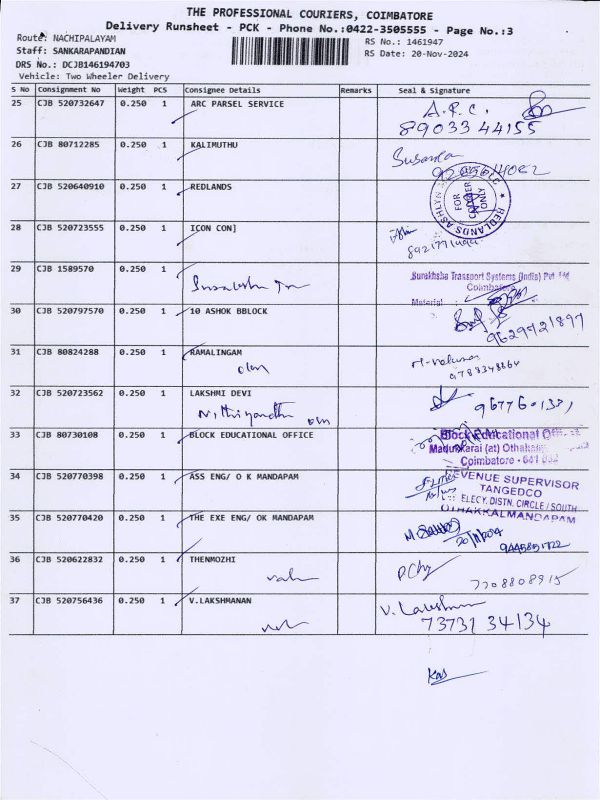 THE PROFESSIONAL COURIERS, COIMBATORE
Delivery Runsheet - PCK - Phone No.:0422-3505555 - Page No.:3
Route: NACHIPALAYAM
RS No.: 1461947
Staff: SANKARAPANDIAN
RS Date: 20-Nov-2024
DRS No.: DCJB146194703
Vehicle: Two Wheeler Delivery
S No Consignment No Weight PCS Consignee Details Remarks Seal & Signature
25 CJB 520732647 0.250 1 ARC PARSEL SERVICE A.R.C.
89033 44155
26 CJB 80712285 0.250 1 KALIMUTHU
27 CJB 520640910 0.250 1 REDLANDS
REDLANDS ASHLYN
FOR COURIER ONLY
28 CJB 520723555 0.250 1 ICON CON]
29 CJB 1589570 0.250 1
Surakhsha Transport Systems (India) Pvt. Ltd
Coimbatore
Material :
30 CJB 520797570 0.250 1 10 ASHOK BBLOCK
9629921897
31 CJB 80824288 0.250 1 RAMALINGAM
32 CJB 520723562 0.250 1 LAKSHMI DEVI
33 CJB 80730108 0.250 1 BLOCK EDUCATIONAL OFFICE
Block Educational
Madukkarai (at)
Coimbatore - 641 032
34 CJB 520770398 0.250 1 ASS ENG/ O K MANDAPAM
REVENUE SUPERVISOR
TANGEDCO
ELECY. DISTN. CIRCLE / SOUTH
OTHAKKALMANDAPAM
35 CJB 520770420 0.250 1 THE EXE ENG/ OK MANDAPAM
36 CJB 520622832 0.250 1 THENMOZHI
7708808915
37 CJB 520756436 0.250 1 V.LAKSHMANAN
V. Lakshman
73731 34134